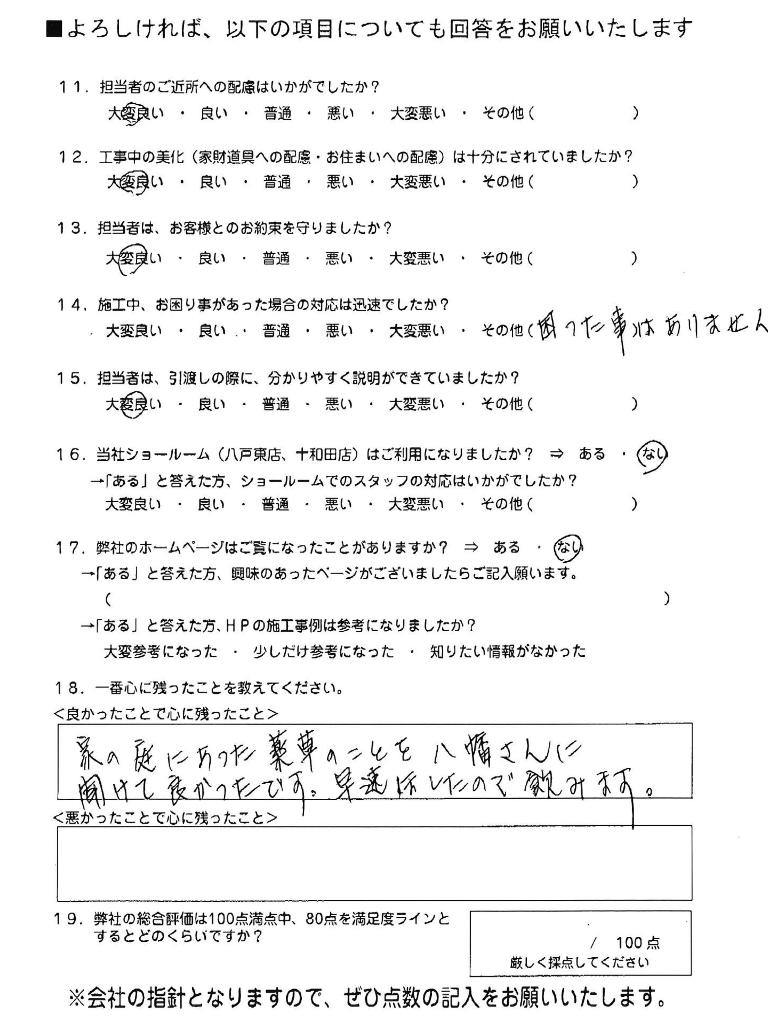 ■よろしければ、以下の項目についても回答をお願いいたします
１１．担当者のご近所への配慮はいかがでしたか？
大変良い ・ 良い ・ 普通 ・ 悪い ・ 大変悪い ・ その他（　　　　　）
１２．工事中の美化（家財道具への配慮・お住まいへの配慮）は十分にされていましたか？
大変良い ・ 良い ・ 普通 ・ 悪い ・ 大変悪い ・ その他（　　　　　）
１３．担当者は、お客様とのお約束を守りましたか？
大変良い ・ 良い ・ 普通 ・ 悪い ・ 大変悪い ・ その他（　　　　　）
１４．施工中、お困り事があった場合の対応は迅速でしたか？
大変良い ・ 良い ・ 普通 ・ 悪い ・ 大変悪い ・ その他（困った事）はありません
１５．担当者は、引渡しの際に、分かりやすく説明ができていましたか？
大変良い ・ 良い ・ 普通 ・ 悪い ・ 大変悪い ・ その他（　　　　　）
１６．当社ショールーム（八戸東店、十和田店）はご利用になりましたか？ ⇒ ある ・ なし
→「ある」と答えた方、ショールームでのスタッフの対応はいかがでしたか？
大変良い ・ 良い ・ 普通 ・ 悪い ・ 大変悪い ・ その他（　　　　　）
１７．弊社のホームページはご覧になったことがありますか？ ⇒ ある ・ ない
→「ある」と答えた方、興味のあったページがございましたらご記入願います。
（　　　　　）
→「ある」と答えた方、ＨＰの施工事例は参考になりましたか？
大変参考になった ・ 少しだけ参考になった ・ 知りたい情報がなかった
１８．一番心に残ったことを教えてください。
＜良かったことで心に残ったこと＞
家の庭にあった薬草のことを八幡さんに
聞けて良かったです。早速干したので飲みます。
＜悪かったことで心に残ったこと＞
１９．弊社の総合評価は100点満点中、80点を満足度ラインと
するとどのくらいですか？
/ 100点
厳しく採点してください
※会社の指針となりますので、ぜひ点数の記入をお願いいたします。